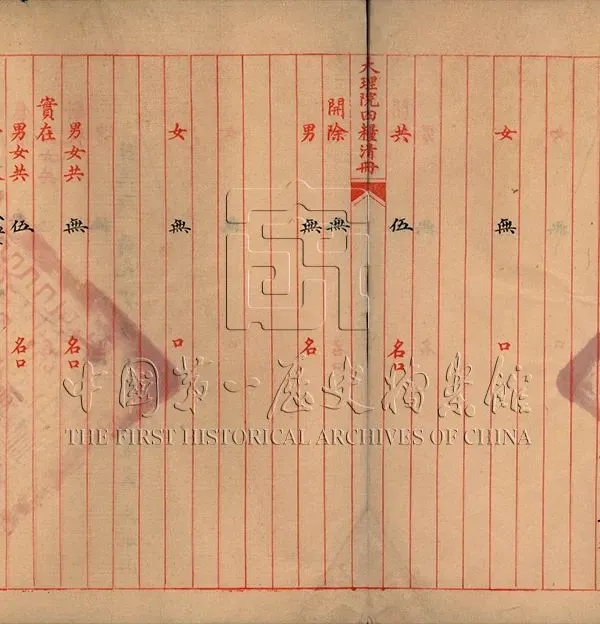 女 無 口
共 伍 名口
大理院囚糧清冊
開除 無
男 無 名
女 無 口
男女共 無 名口
實在
男女共 伍 名口
中國第一歷史檔案館
THE FIRST HISTORICAL ARCHIVES OF CHINA